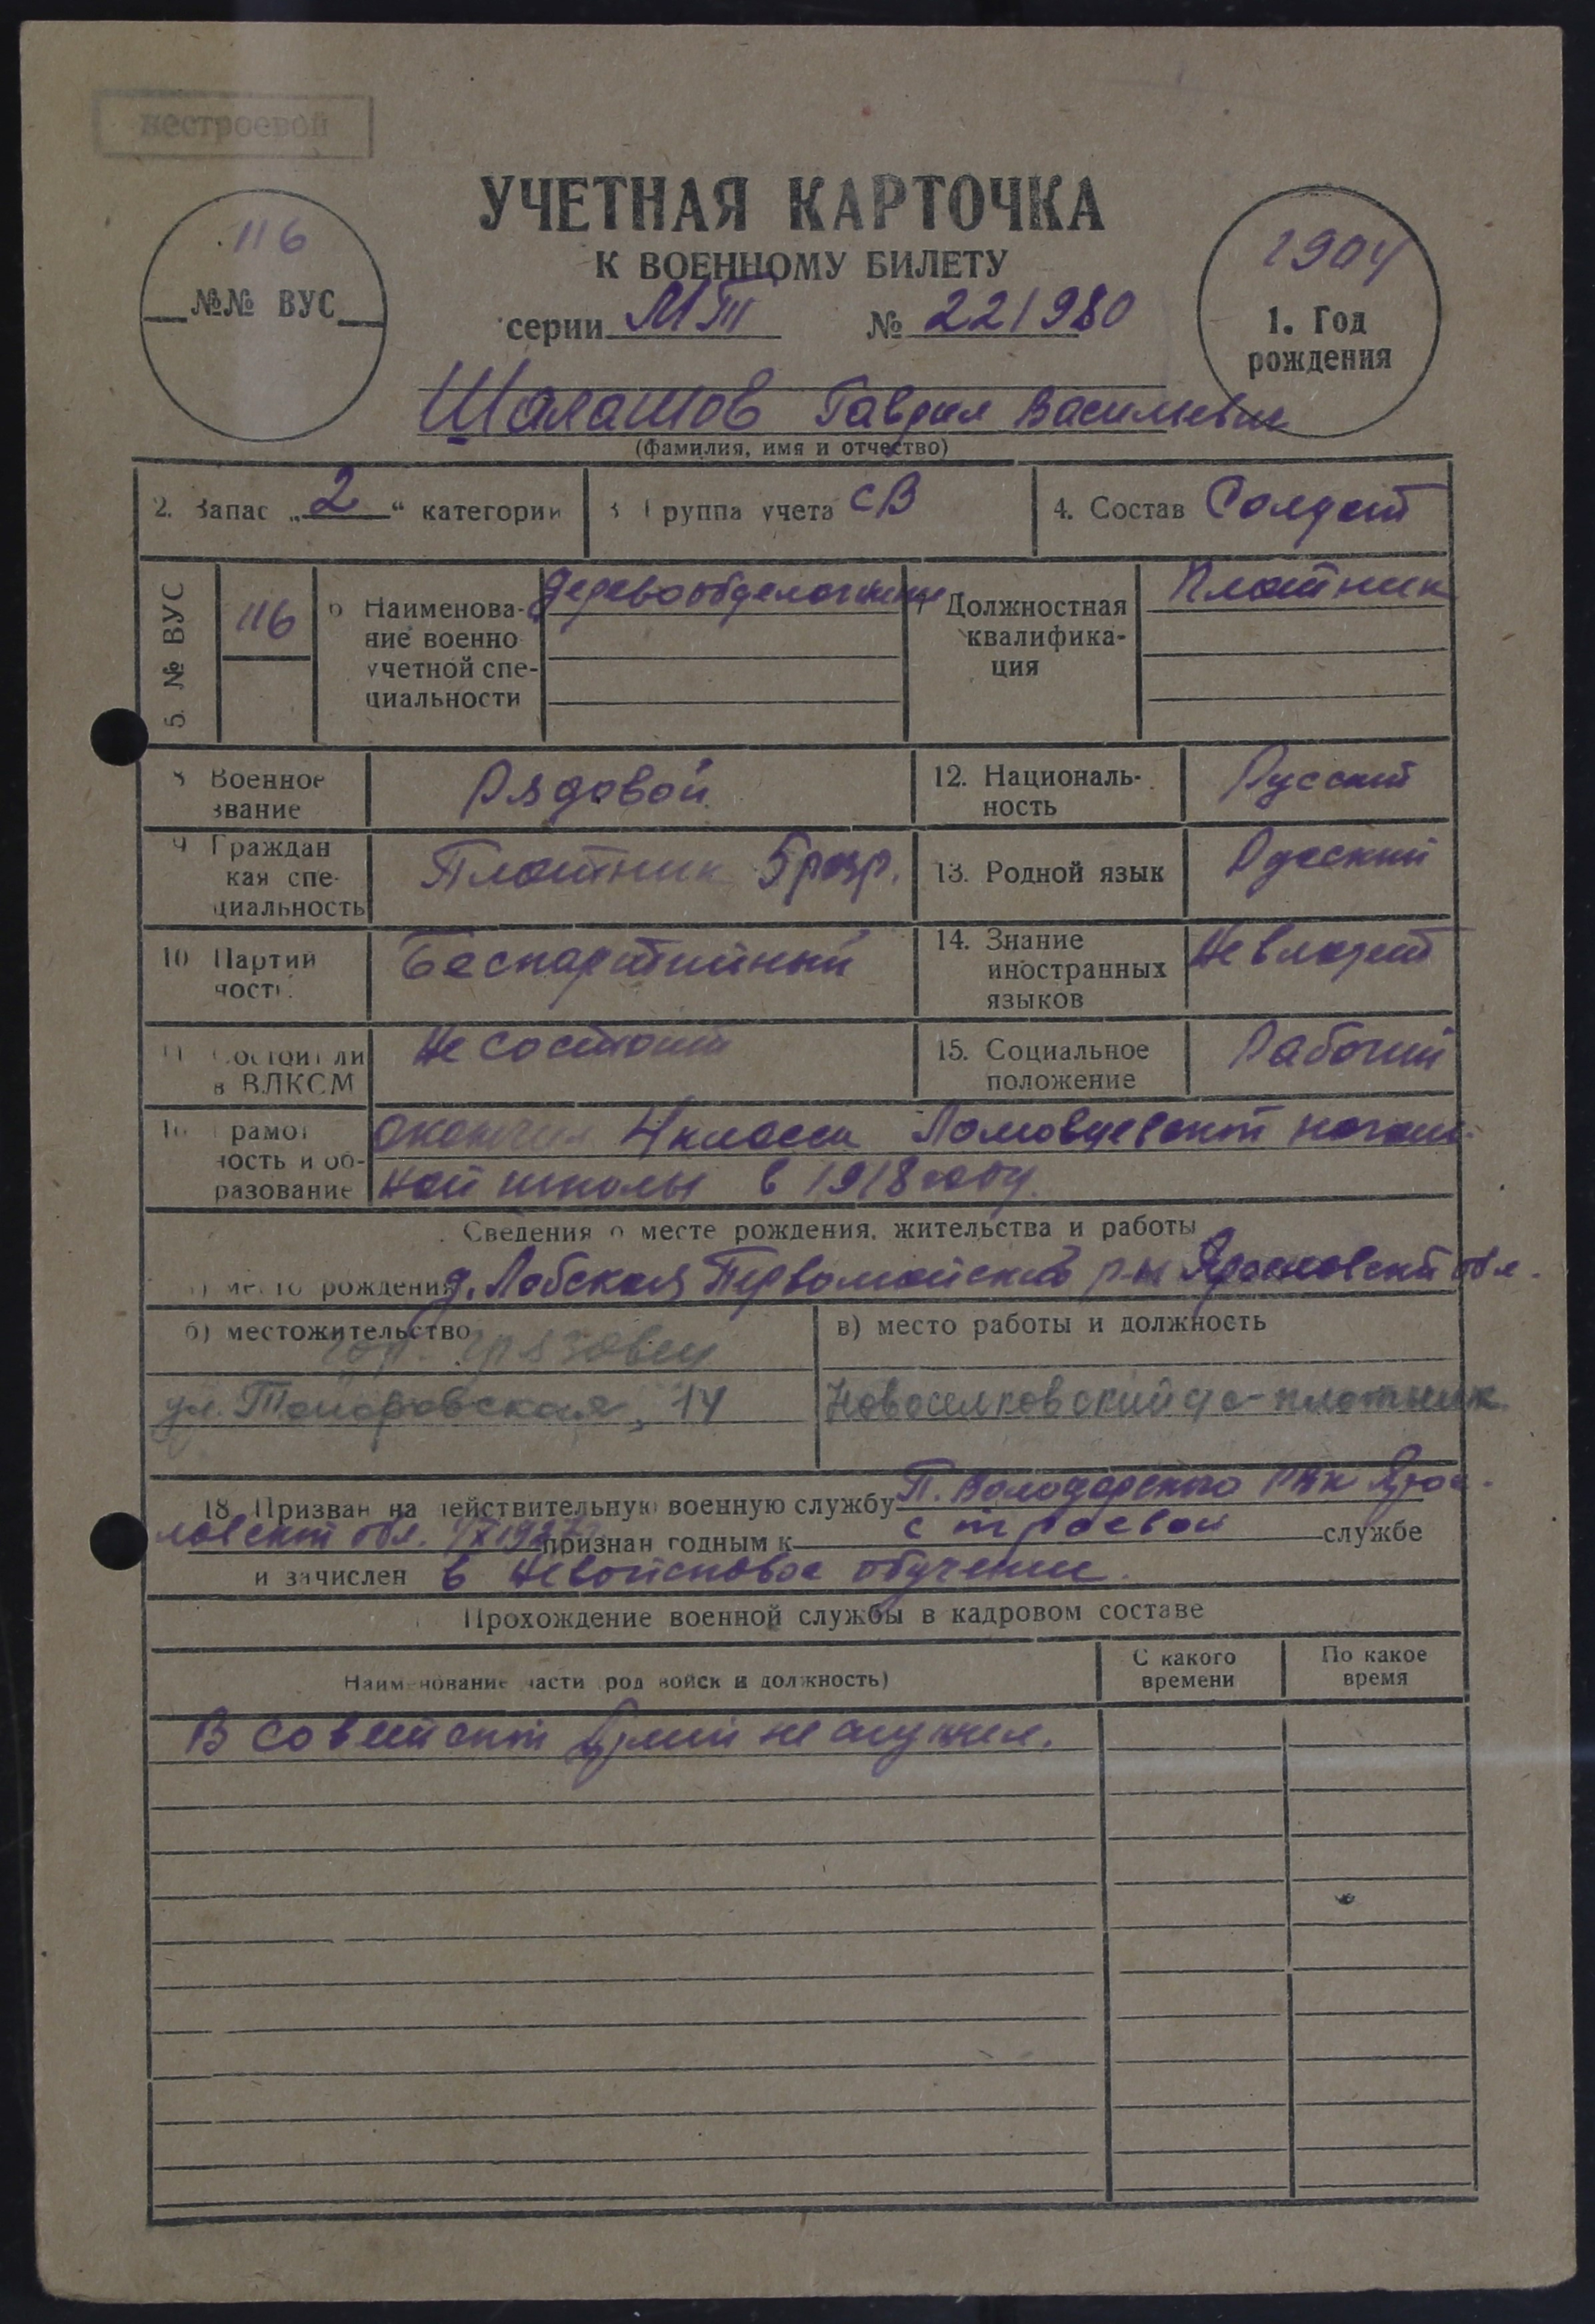 нестроевой
УЧЕТНАЯ КАРТОЧКА
К ВОЕННОМУ БИЛЕТУ
116
№№ ВУС
серии МТ № 221980
1904
1. Год
рождения
Шалашов Гаврил Васильевич
(фамилия, имя и отчество)
2. Запас „2“ категории
3 Группа учета СВ
4. Состав Солдат
5. № ВУС
116
6 Наименова-
ние военно
учетной спе-
циальности
Деревообделочники
7 Должностная
квалифика-
ция
Плотник
8 Военное
звание
Рядовой
12. Националь-
ность
Русский
9 Граждан
кая спе-
циальность
Плотник 5 разр.
13. Родной язык
Русский
10 Партий
ность
Беспартийный
14. Знание
иностранных
языков
Не владеет
11 Состоит ли
в ВЛКСМ
Не состоит
15. Социальное
положение
Рабочий
16 Грамот
ность и об-
разование
Окончил 4 класса Ломовцевской началь-
ной школы в 1918 году.
Сведения о месте рождения, жительства и работы
а) место рождения д. Лобская Первомайский р-н Ярославской обл.
б) местожительство
гор. Грязовец
ул. Топоровская, 14
в) место работы и должность
Новоселковский - плотник
18. Призван на действительную военную службу П. Володарского РВК Яros-
лавской обл. признан годным к строевой службе
и зачислен в невойсковое обучение.
Прохождение военной службы в кадровом составе
Наименование части род войск и должность)
С какого
времени
По какое
время
В советской Армии не служил.